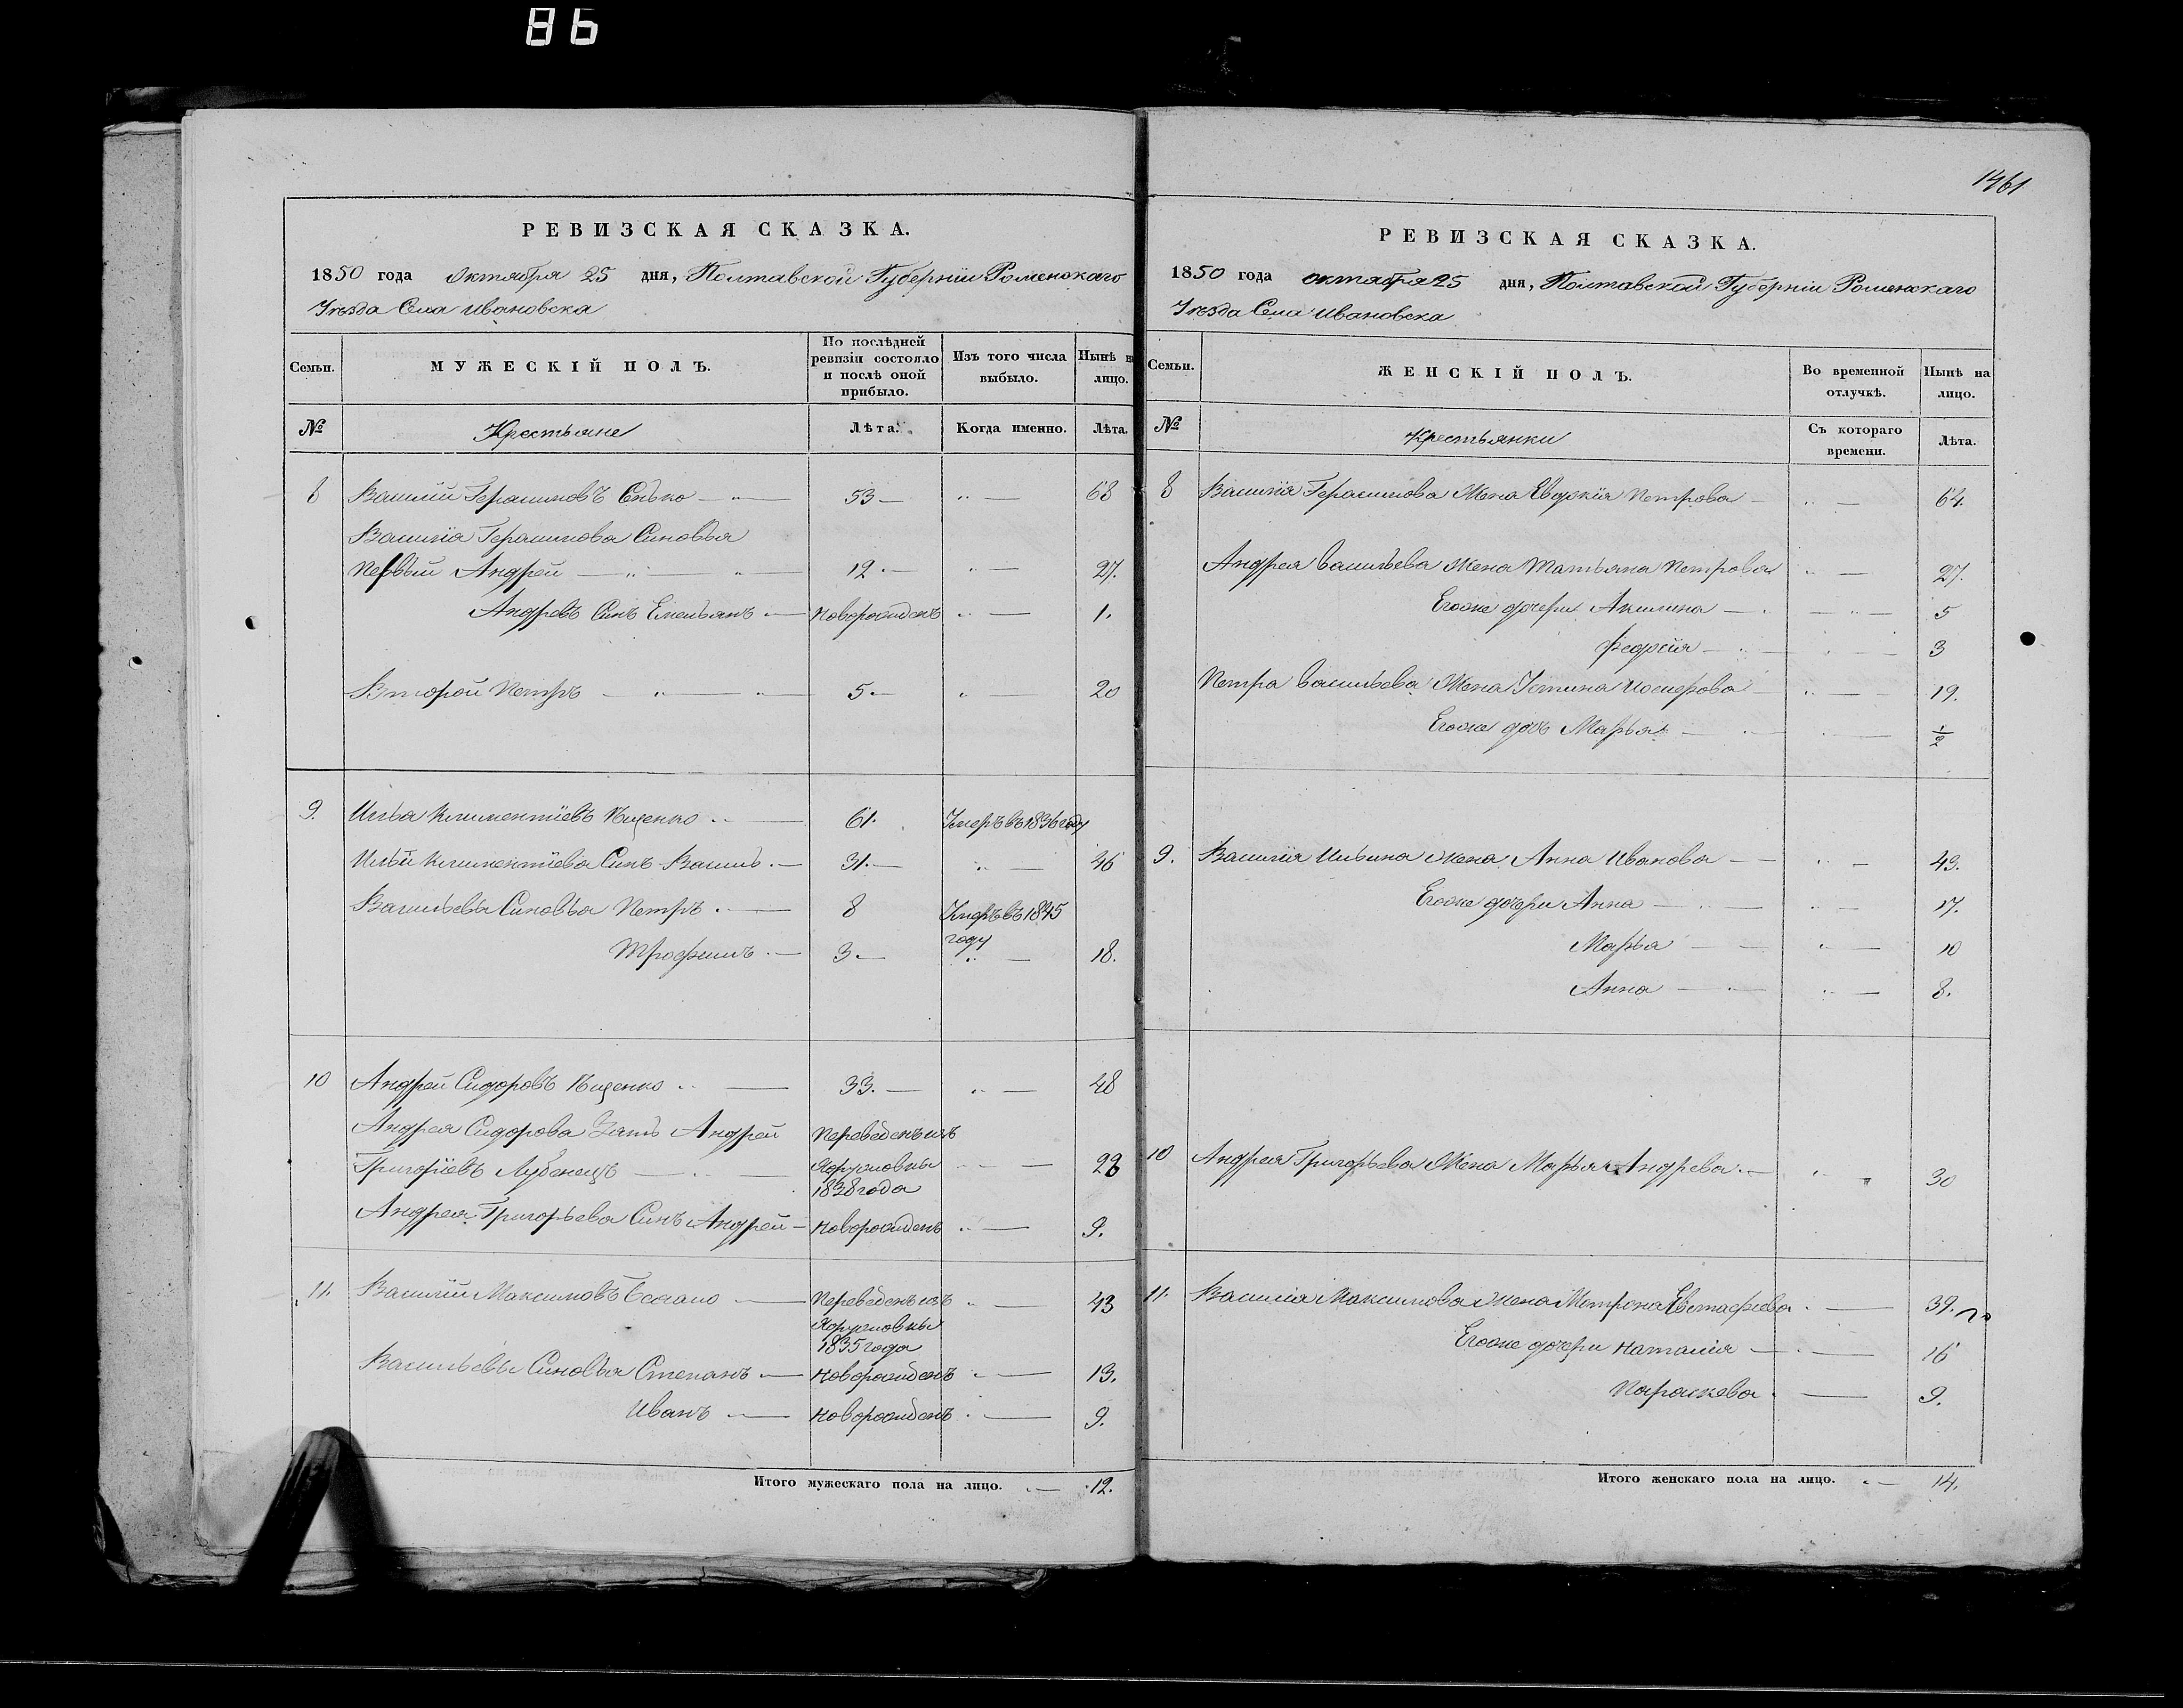 86
РЕВИЗСКАЯ СКАЗКА.
1850 года Октября 25 дня, Полтавской Губерніи Роменского
Уезда Села Ивановска
Семьи.
МУЖЕСКІЙ ПОЛЪ.
По послѣдней ревизіи состояло и послѣ оной прибыло.
Изъ того числа выбыло.
Нынѣ на лицо.
№ Крестьяне Лѣта. Когда именно. Лѣта.
8 Василій Герасимовъ 53 68
Василія Герасимова Синовья
Первый Андрей 12 27.
Андревъ Синъ Емельянъ Новорожденъ 1.
Второй Петръ 5 20
9. Илья Климентіевъ 61. Умеръ въ 1836 году
Ильи Климентіева Синъ Василь 31. 46
Васильевы Синовья Петръ 8 Умеръ въ 1845 году
Трофимъ 3 18.
10 Андрей Сидоровъ 33. 48
Андрея Сидорова Зять Андрей Переведенъ изъ
Григоріевъ Лубенецъ 1838 года 28
Андрея Григорьева Синъ Андрей Новорожденъ 9.
11. Василій Максимовъ Переведенъ изъ 43
1835 года
Васильевы Синовья Степанъ Новорожденъ 13.
Иванъ Новорожденъ 9.
Итого мужескаго пола на лицо. 12.
1461
РЕВИЗСКАЯ СКАЗКА.
1850 года октября 25 дня, Полтавской Губерніи Роменского
Уезда Села Ивановска
Семьи.
ЖЕНСКІЙ ПОЛЪ.
Во временной отлучкѣ.
Нынѣ на лицо.
№ Крестьянки Съ котораго времени. Лѣта.
8 Василія Герасимова Жена Евдокія Петрова 64.
Андрея Васильева Жена Татьяна Петрова 27.
Егоже дочери Акилина 5
Федосія 3
Петра Васильева Жена Устина 19.
Егоже дочь Марья 1/2
9. Василія Ильина жена Анна Иванова 43.
Егоже дочери Анна 17.
Марья 10
Анна 8.
10 Андрея Григорьева Жена Марья Андрева 30
11. Василія Максимова Жена Мотрона Евстафіева 39.
Егоже дочери Наталія 16
Параскева 9.
Итого женскаго пола на лицо. 14.